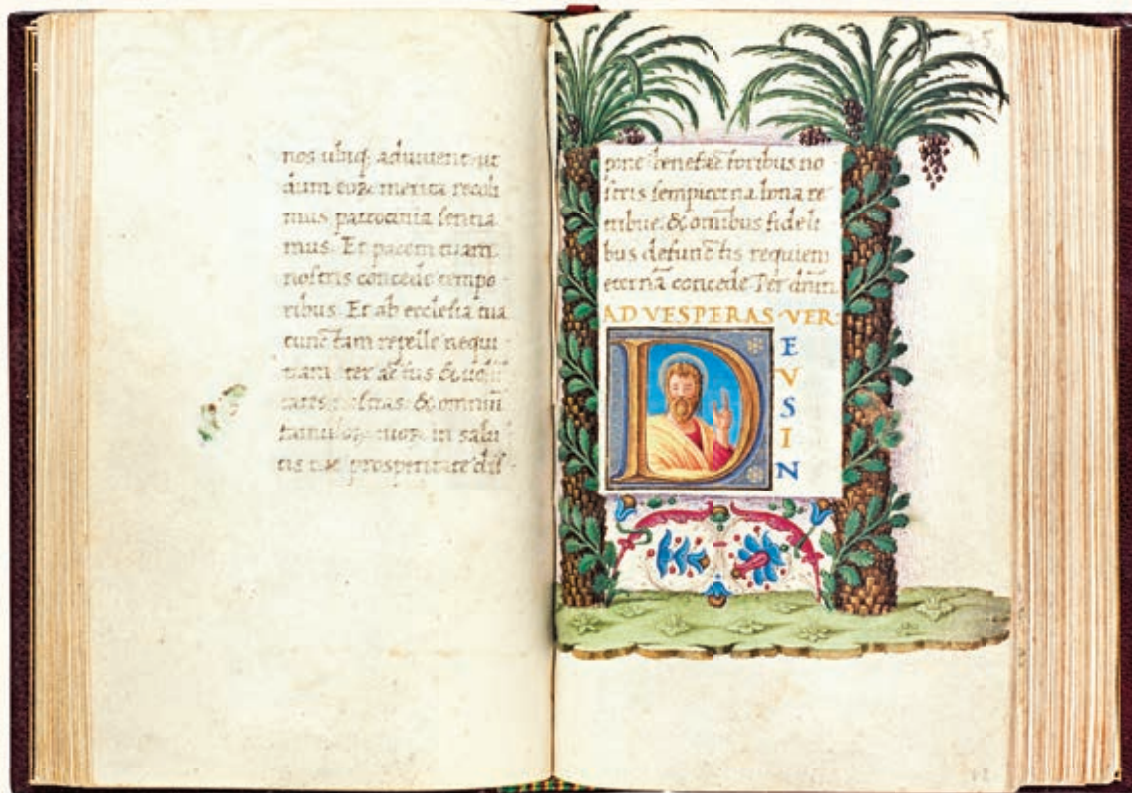 nos ubiq; adiuvent: ut
dum eoꝝ merita recoli
mus patrocinia sentia
mus. Et pacem tuam
nostris concede tempo
ribus. Et ab ecclesia tua
cunctam repelle nequi
tiam. Iter actus &
&
in salu
tis tuæ prosperitate dis
pone benefac̄toribus no
stris sempiterna bona re
tribue. & omībus fideli
bus defunctis requiem
eternā concede Per dnm̄
AD VESPERAS·VER·
D
E
V
S
I
N